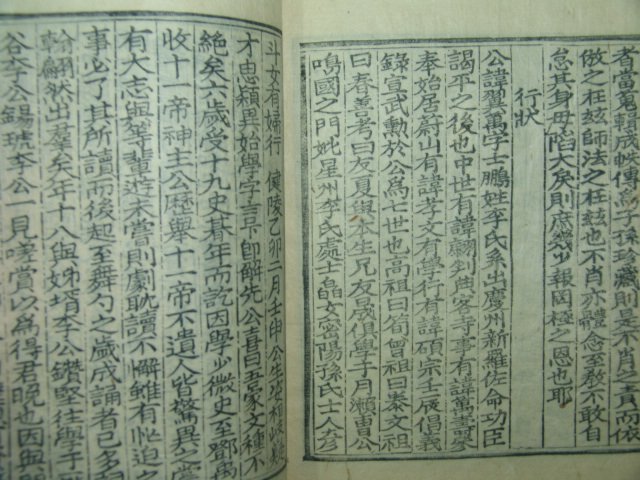 者當窀輯成帙傳爲子孫珍藏則是不肖之責而依
倣之在玆師法之在玆也不肖亦體念至敎不敢自
怠其身毋陷大矣則庶幾少報罔極之恩也耶
行狀
公諱翼萬字士鵬姓李氏系出慶州新羅佐命功臣
謁平之後也中世有諱翿判典客寺事有諱萬實參
奉始居蔚山有諱孝文有學行有諱碩宗壬辰倡義
錄宣武勳於公爲七世也高祖曰筍曾祖曰泰文祖
曰春善考曰友夏與本生兄友晟俱學于月瀨曺公
鳴國之門妣星州李氏處士晶女密陽孫氏士人彦
斗女有婦行 健陵乙卯二月壬申公生姿相岐嶷
才思穎異始學字言下卽解先公喜曰吾家文種不
絶矣六歲受十九史朞年而訖因學少微史至鄧禹
收十一帝神主公歷擧十一帝不遺人皆驚異之
有大志與等輩遊未嘗則劇耽讀不懈雖有怭迫之
事必了其所讀而後起至舞勺之歲成誦者已多
翩然出羣矣年十八與姊壻李公鑽堅往學于
谷李公錫琥李公一見嗟賞以爲得君晩也因與